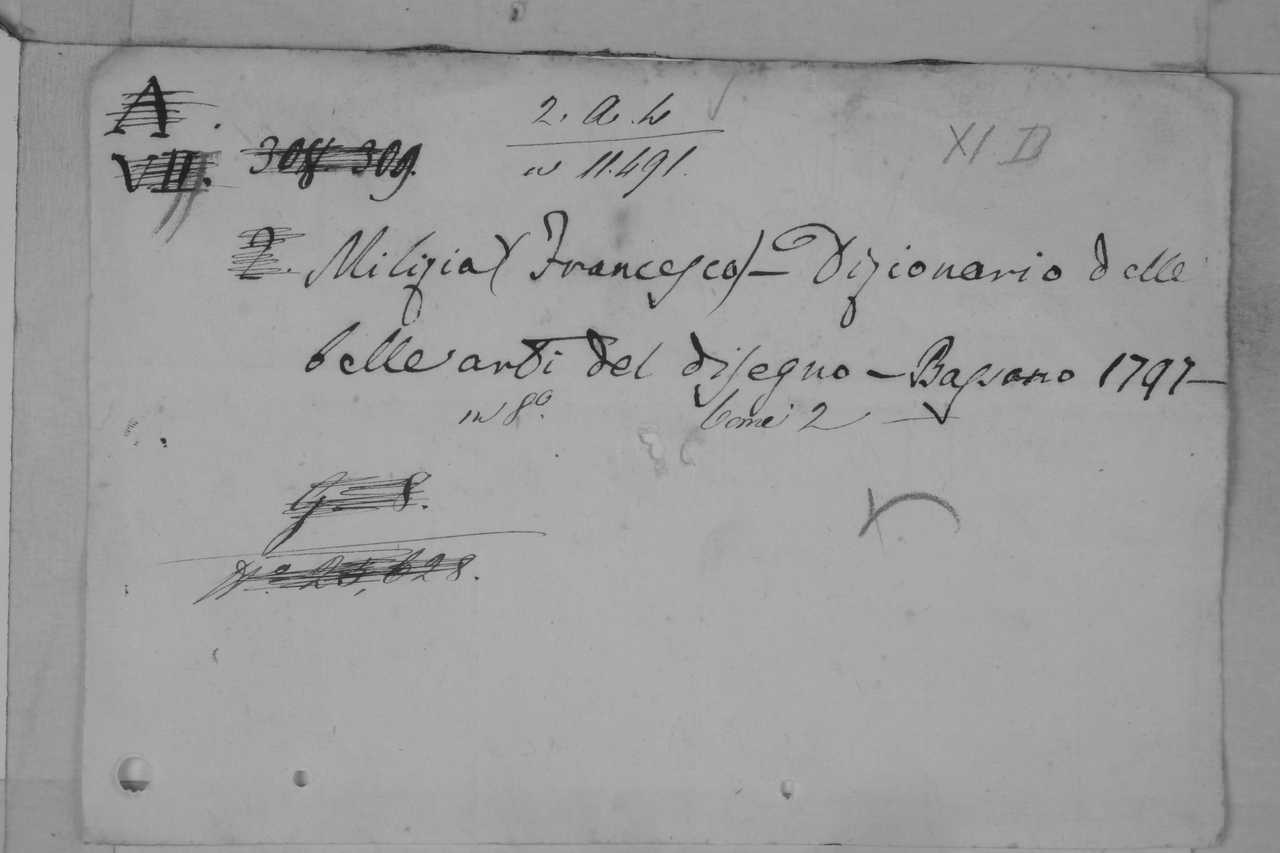 A.
VII.
308. 309.
2. a. h
n 11.491.
XI B
2. Milizia (Francesco) – Dizionario delle
belle arti del disegno – Bassano 1797 –
in 8º. tomi 2 –
G – 8.
Nº 25,628.